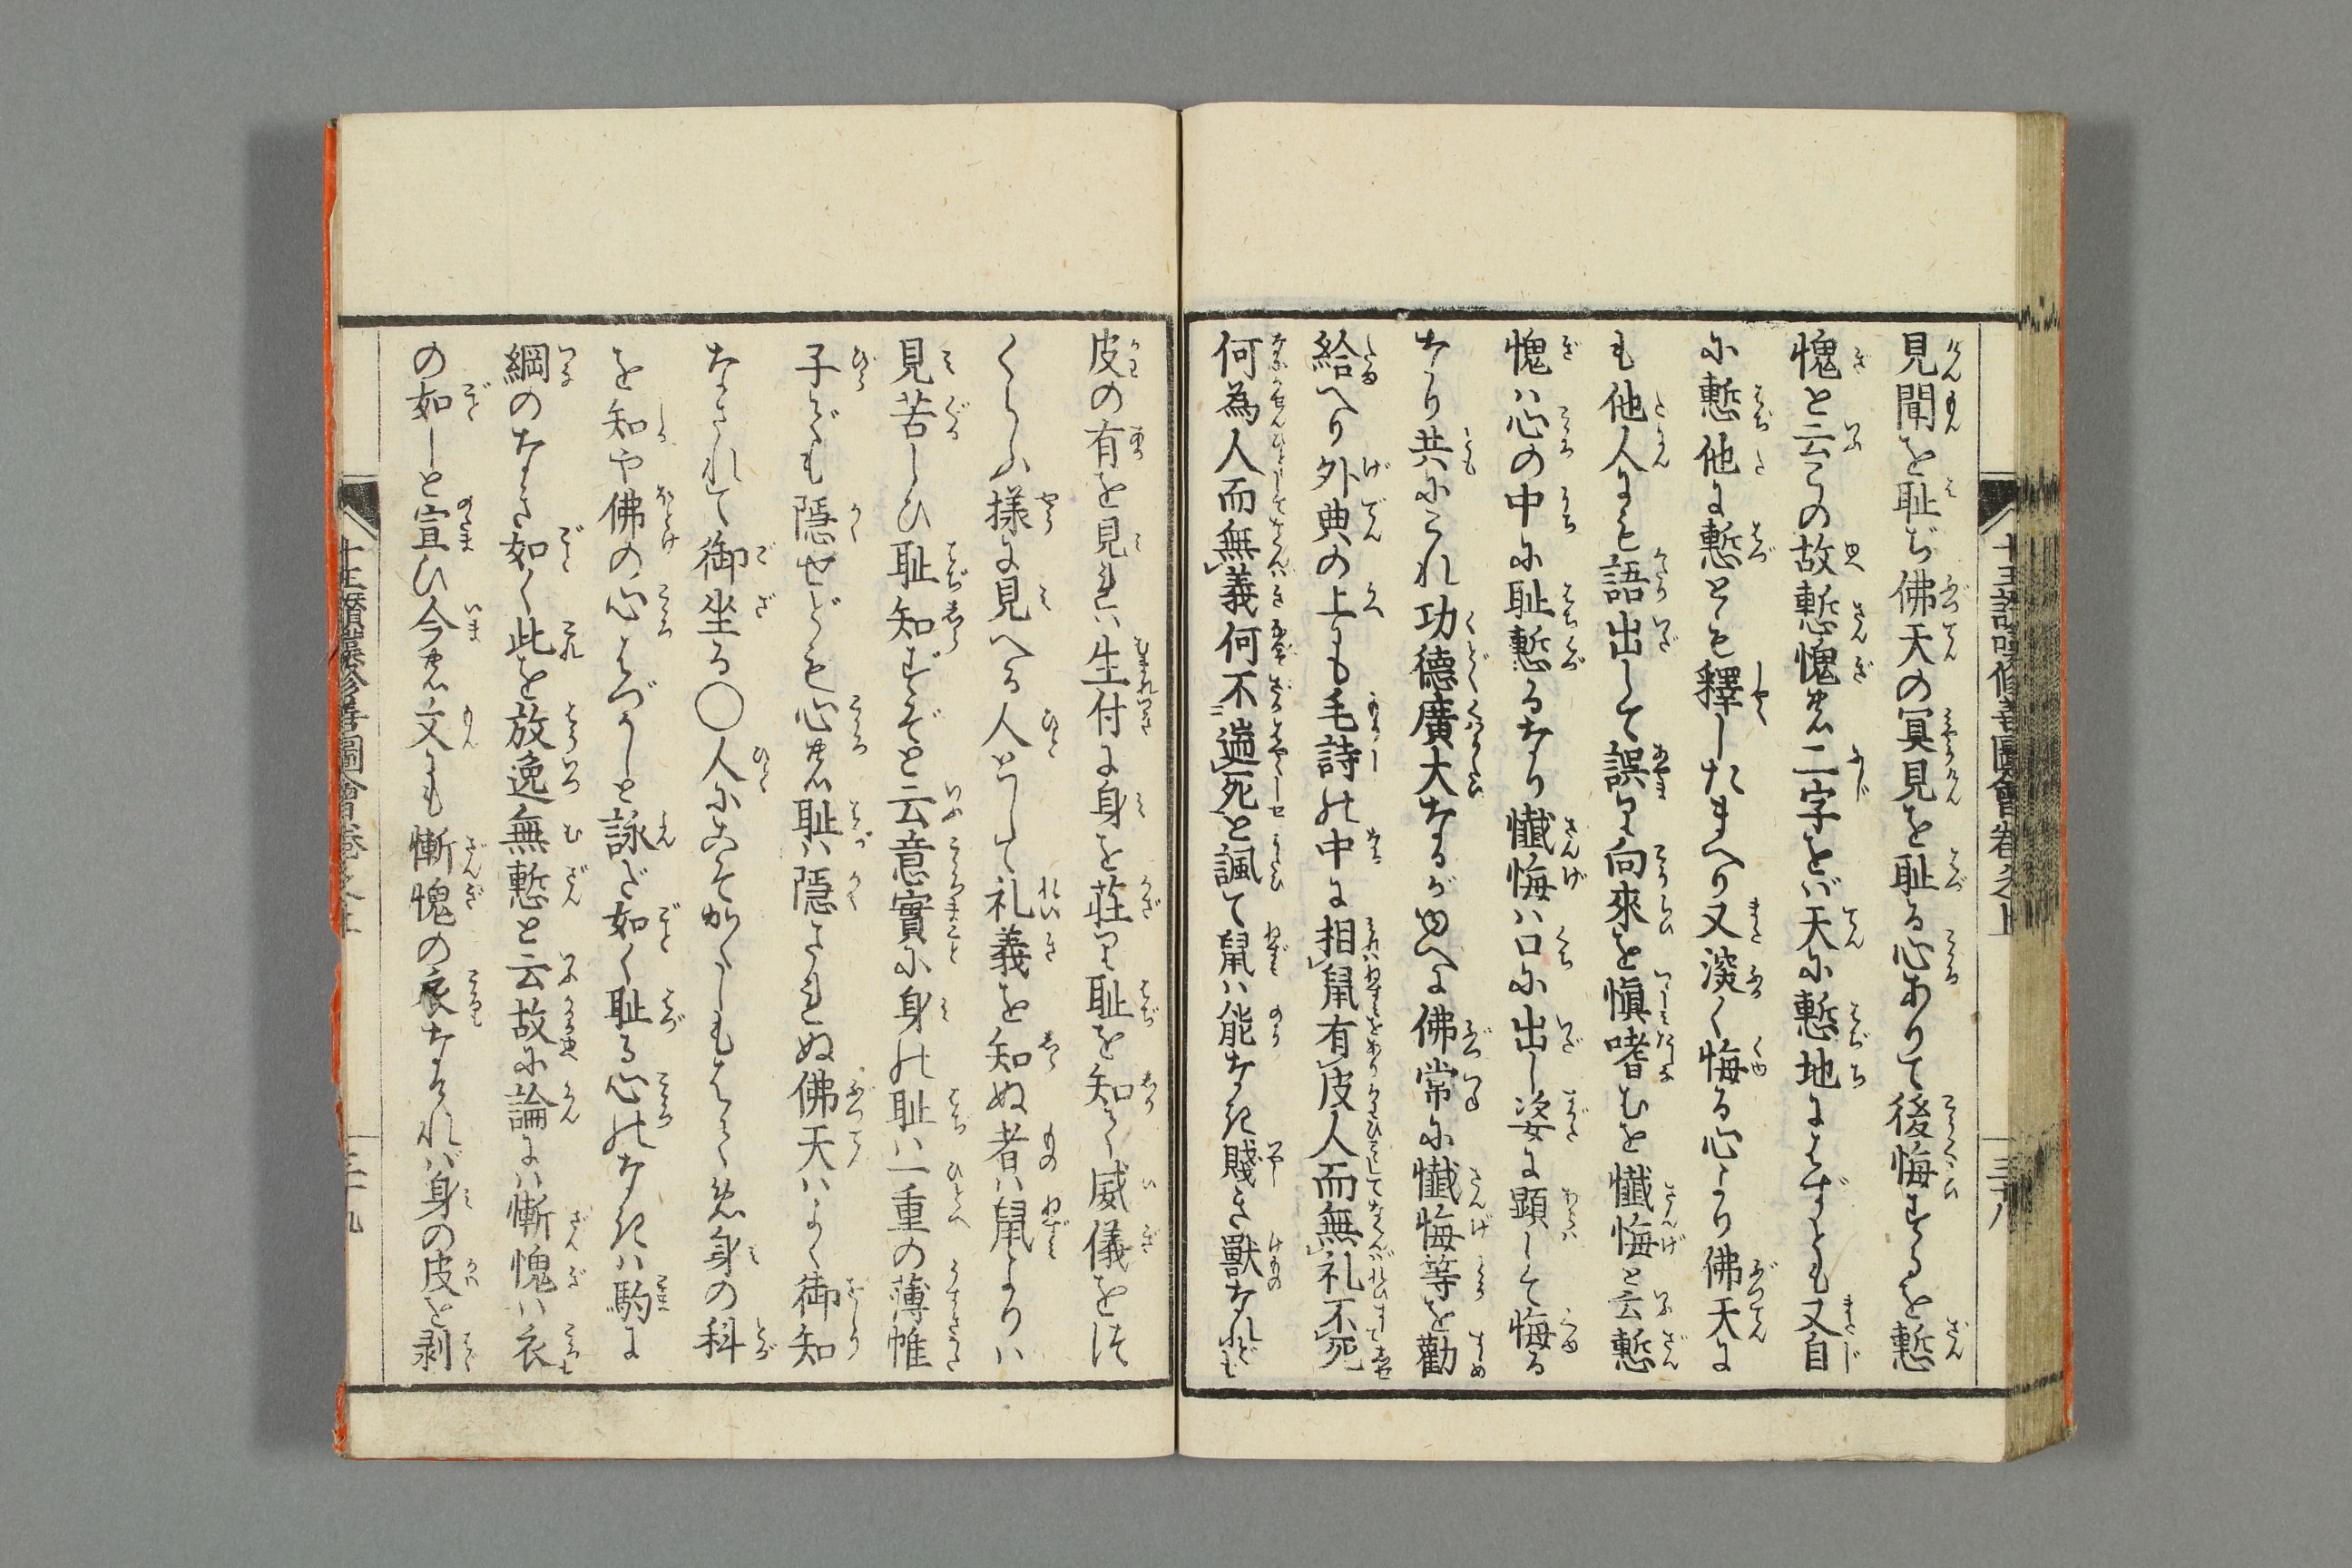 見聞を耻ぢ佛天の冥見を耻る心ありて後悔するを慙
愧と云この故慙愧の二字をば天に慙地にはづとも又自
に慙他に慙とも釋したまへり又深く悔る心より佛天に
も他人にも語出して誤り向來を愼嗜むを懺悔と云慙
愧ハ心の中に耻慙るなり懺悔ハ口に出し姿に顕して悔る
なり共にこれ功德廣大なるがゆへに佛常に懺悔等を勸
給へり外典の上にも毛詩の中に相鼠有皮人而無礼不死
何為人而無義何不遄死と諷て鼠ハ能なき賤き獸なれども
皮の有を見れハ生付に身を莊り耻を知て威儀をつ
くらふ様に見へる人として礼義を知ぬ者ハ鼠よりハ
見苦しひ耻知ずぞと云意實に身の耻ハ一重の薄帷
子でも隠せども心の耻ハ隠されぬ佛天ハよく御知
なされて御坐る○人にこそかくしもはてめ身の科
を知や佛の心はづかしと詠ぜし如く耻る心のなきハ駒に
綱のなき如く此を放逸無慙と云故に論にハ慚愧ハ衣
の如しと宣ひ今の文にも慚愧の衣なければ身の皮を剥
十王讃嘆修善圖會卷之上
三十八
十王讃嘆修善圖會卷之上
三十九